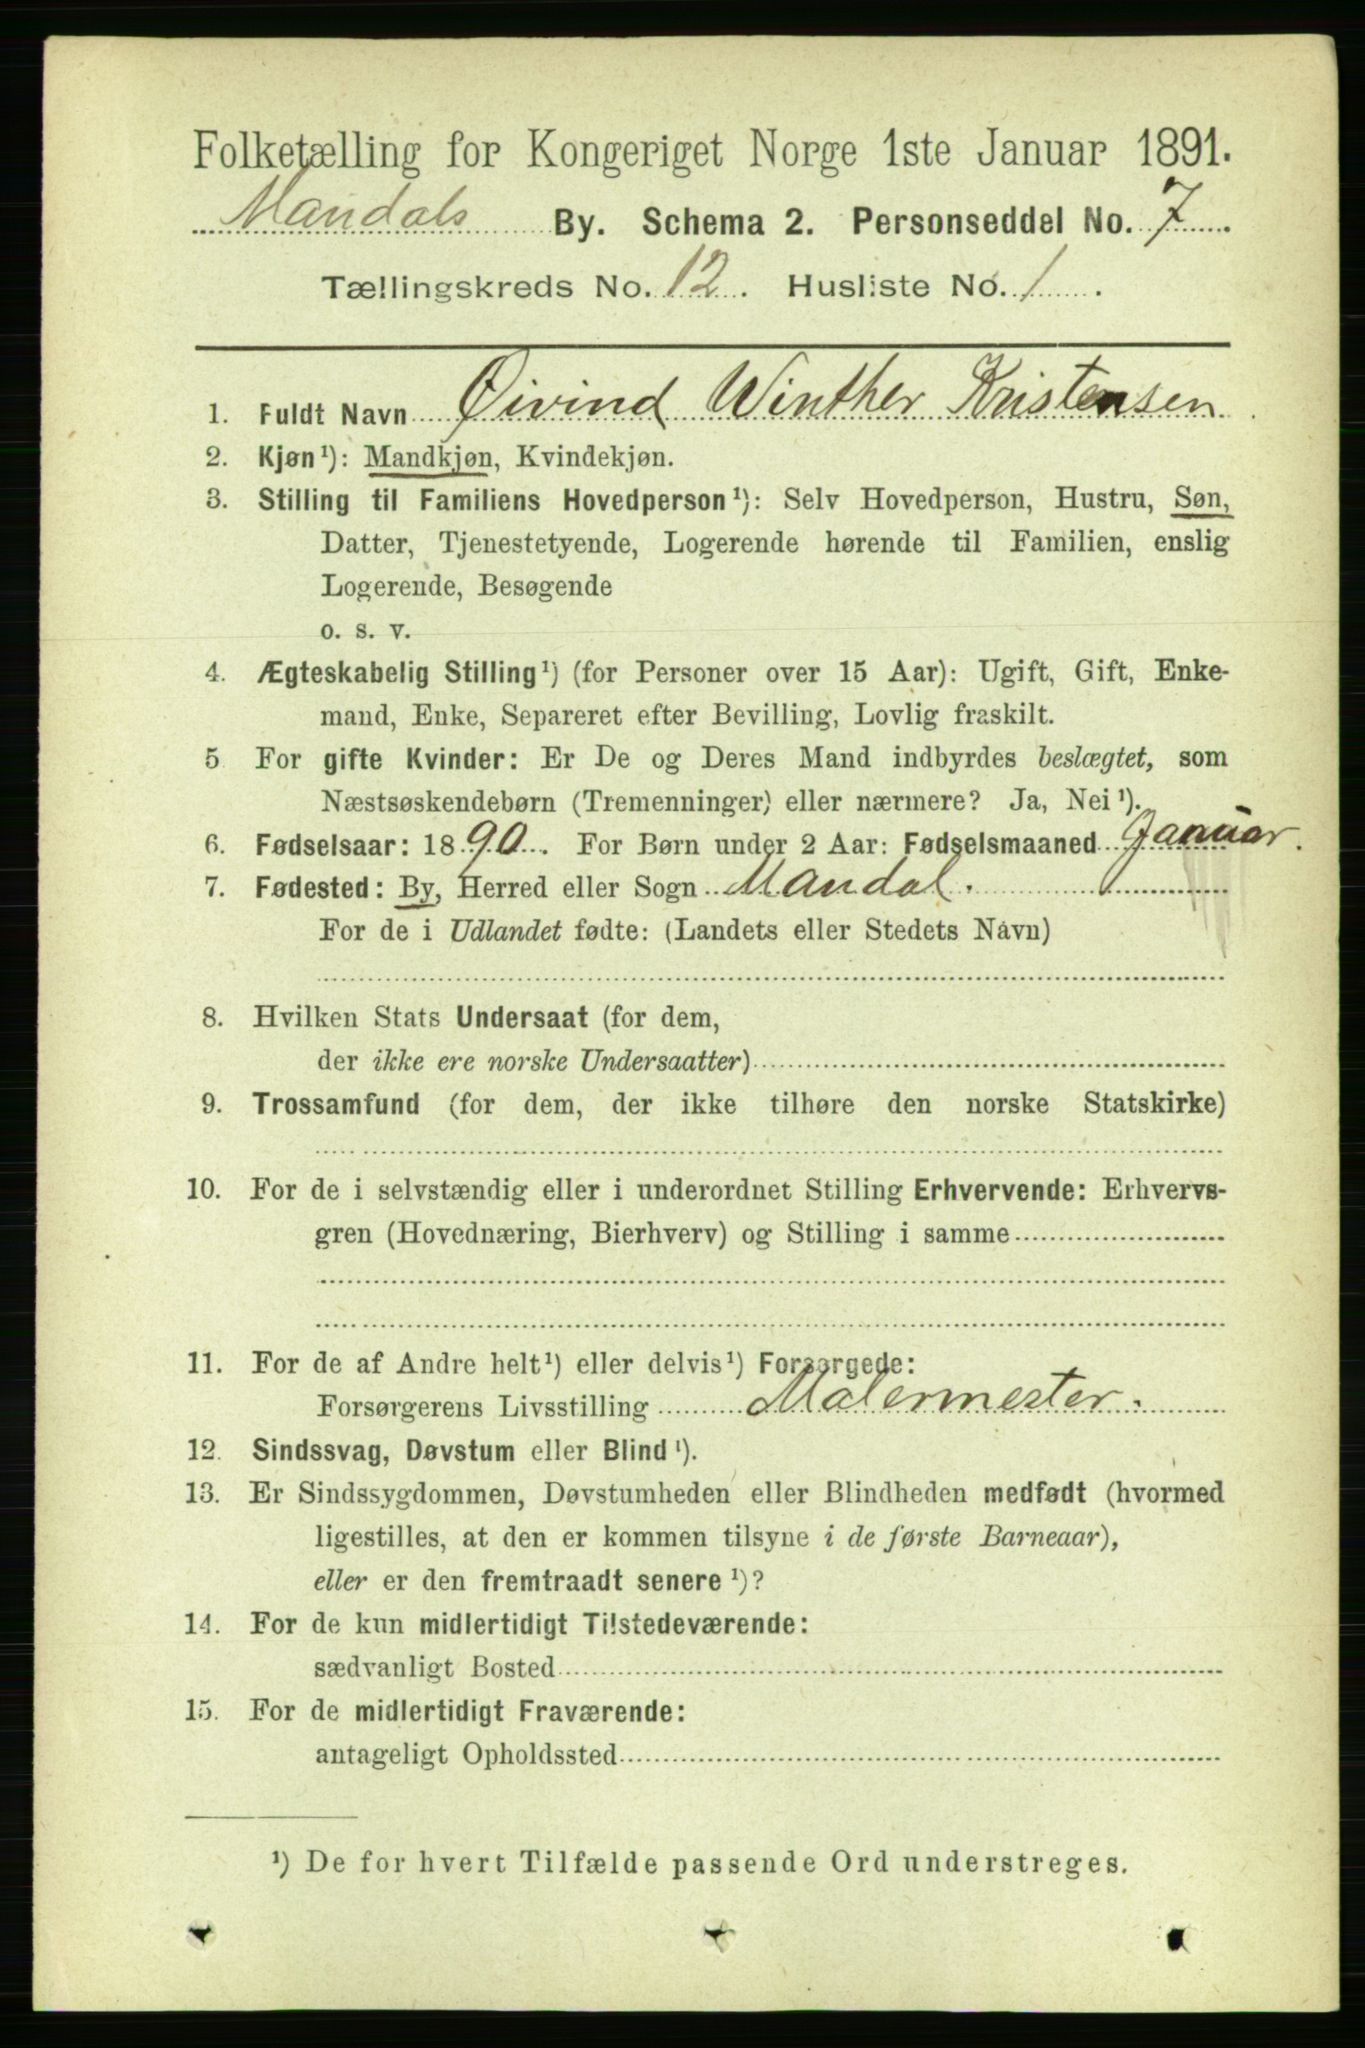 Folketælling for Kongeriget Norge 1ste Januar 1891.
Mandals By. Schema 2. Personseddel No. 7.
Tællingskreds No. 12. Husliste No. 1.
1. Fuldt Navn Øivind Winther Kristensen
2. Kjøn¹): Mandkjøn, Kvindekjøn.
3. Stilling til Familiens Hovedperson¹): Selv Hovedperson, Hustru, Søn,
Datter, Tjenestetyende, Logerende hørende til Familien, enslig
Logerende, Besøgende
o. s. v.
4. Ægteskabelig Stilling¹) (for Personer over 15 Aar): Ugift, Gift, Enke-
mand, Enke, Separeret efter Bevilling, Lovlig fraskilt.
5 For gifte Kvinder: Er De og Deres Mand indbyrdes beslægtet, som
Næstsøskendebørn (Tremenninger) eller nærmere? Ja, Nei¹).
6. Fødselsaar: 1890. For Børn under 2 Aar: Fødselsmaaned Januar.
7. Fødested: By, Herred eller Sogn Mandal.
For de i Udlandet fødte: (Landets eller Stedets Navn)
8. Hvilken Stats Undersaat (for dem,
der ikke ere norske Undersaatter)
9. Trossamfund (for dem, der ikke tilhøre den norske Statskirke)
10. For de i selvstændig eller i underordnet Stilling Erhvervende: Erhvervs-
gren (Hovednæring, Bierhverv) og Stilling i samme
11. For de af Andre helt¹) eller delvis¹) Forsørgede:
Forsørgerens Livsstilling Malermester.
12. Sindssvag, Døvstum eller Blind¹).
13. Er Sindssygdommen, Døvstumheden eller Blindheden medfødt (hvormed
ligestilles, at den er kommen tilsyne i de første Barneaar),
eller er den fremtraadt senere¹)?
14. For de kun midlertidigt Tilstedeværende:
sædvanligt Bosted
15. For de midlertidigt Fraværende:
antageligt Opholdssted
¹) De for hvert Tilfælde passende Ord understreges.